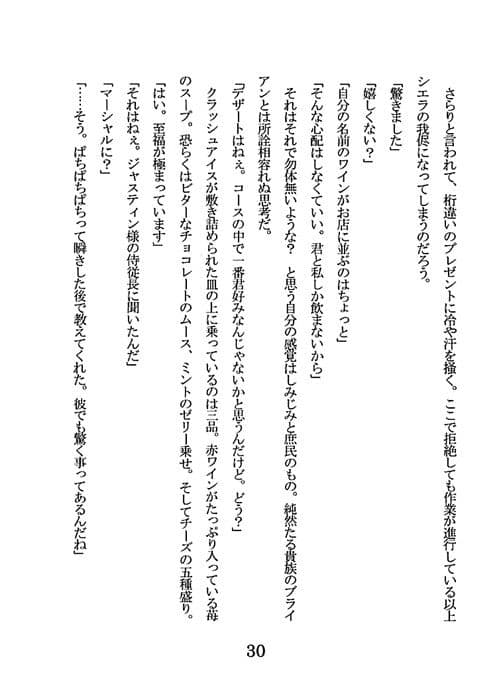 さらりと言われて、桁違いのプレゼントに冷や汗を掻く。ここで拒絶しても作業が進行している以上
シエラの我侭になってしまうのだろう。
「驚きました」
「嬉しくない？」
「自分の名前のワインがお店に並ぶのはちょっと」
「そんな心配はしなくていい。君と私しか飲まないから」
　それはそれで勿体無いような？　と思う自分の感覚はしみじみと庶民のもの。純然たる貴族のブライ
アンとは所詮相容れぬ思考だ。
「デザートはねぇ。コースの中で一番君好みなんじゃないかと思うんだけど。どう？」
　クラッシュアイスが敷き詰められた皿の上に乗っているのは三品。赤ワインがたっぷり入っている苺
のスープ。恐らくはビターなチョコレートのムース、ミントのゼリー乗せ。そしてチーズの五種盛り。
「はい。至福が極まっています」
「それはねぇ。ジャスティン様の侍従長に聞いたんだ」
「マーシャルに？」
「……そう。ぱちぱちぱちって瞬きした後で教えてくれた。彼でも驚く事ってあるんだね」
30